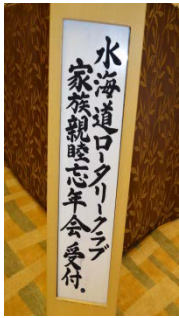 水海道ロータリークラブ
家族親睦忘年会受付。